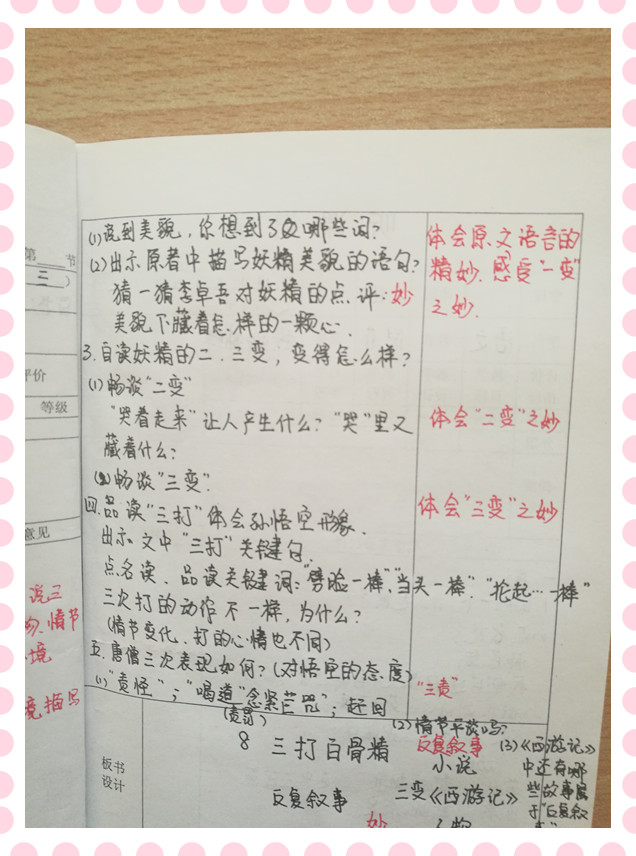 第 节
三）
评价
等级
意见
说三
情节
境
境描写
(1)说到美貌，你想到了哪些词？
(2)出示原著中描写妖精美貌的语句？
猜一猜李卓吾对妖精的点评：妙
美貌下藏着怎样的一颗心．
3．自读妖精的二．三变，变得怎么样？
(1)畅谈“二变”
“哭着走来”让人产生什么？“哭”里又
藏着什么？
(2)畅谈“三变”．
四．品读“三打”体会孙悟空形象．
出示文中“三打”关键句．
点名读．品读关键词：“劈脸一棒”、“当头一棒”．“抡起…一棒”
三次打的动作不一样，为什么？
(情节变化．打的心情也不同)
五．唐僧三次表现如何？(对悟空的态度)
(1)“责怪”；“喝道”“念紧箍咒”；赶回
(责罚)
体会原文语言的
精妙．感受“一变”
之妙．
体会“二变”之妙
体会“三变”之妙
“三责”
(2)情节平淡吗？
反复叙事
(3)《西游记》
中还有哪
些故事属
于“反复叙
板书
设计
8 三打白骨精
小说
反复叙事
三变《西游记》
妙